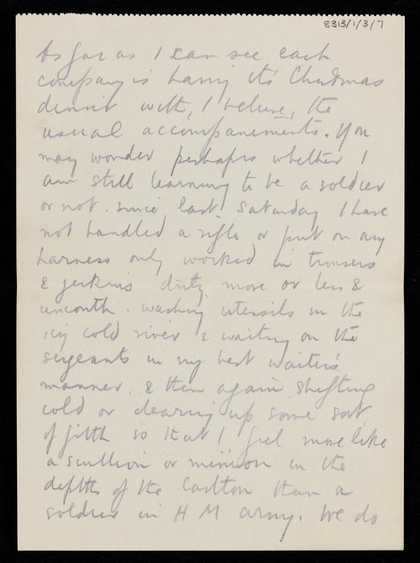 8313/1/3/7
As far as I can see each
company is having its Christmas
dinner with, I believe, the
usual accompanements. You
may wonder perhaps whether I
am still learning to be a soldier
or not. Since last Saturday I have
not handled a rifle or put on any
harness only worked in trousers
& jerkins dirty more or less &
uncouth. Washing utensils in the
icy cold river & waiting on the
sergeants in my best waiter's
manner. & then again shifting
cold or clearing up some sort
of filth so that I feel more like
a scullion or minion in the
depths of the Carlton than a
soldier in H M army. We do